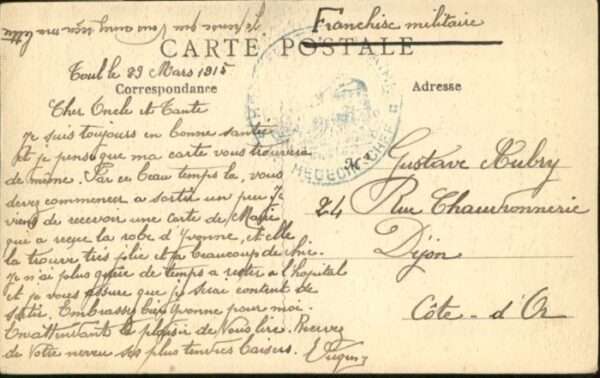 Je pense que Vous aurez reçu ma lettre
Franchise militaire
CARTE POSTALE
Toul le 29 Mars 1915
Correspondance
Adresse
Cher Oncle et Tante
Je suis toujours en bonne santé
et je pense que ma carte vous trouvera
de même. Par ce beau temps la, vous
devez commencer a sortir un peu Je
viens de recevoir une carte de Marie
qui a reçue la robe d'Yvonne, et elle
la trouve très jolie et a beaucoup de chic.
Je n'ai plus guère de temps a rester a l'hopital
et je vous assure que je serai content de
sortir. Embrassez bien Yvonne pour moi.
En attendant le plaisir de Vous lire. Recevez
de Votre neveu ses plus tendres baisers.
MEDECIN CHEF
Gustave Aubry
24 Rue Chaudronnerie
Dijon
Côte-d'Or